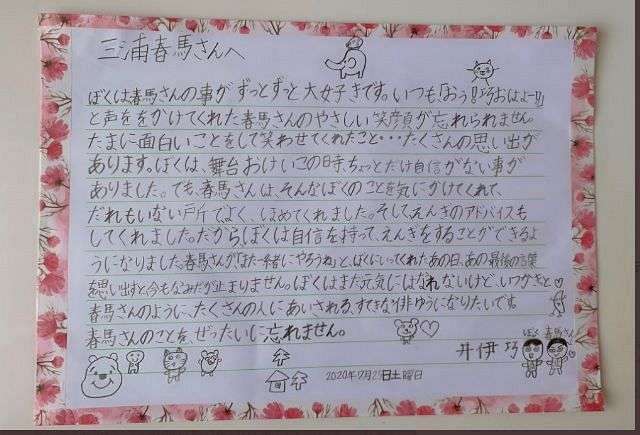 三浦春馬さんへ
ぼくは春馬さんの事がずっとずっと大好きです。いつも「おう!巧おはよー!!」
と声ををかけてくれた春馬さんのやさしい笑顔が忘れられません。
たまに面白いことをして笑わせてくれたこと・・・たくさんの思い出が
あります。ぼくは、舞台おけいこの時、ちょっとだけ自信がない事が
ありました。でも、春馬さんは、そんなぼくのことを気にかけてくれて、
だれもいない所でよく、ほめてくれました。そして、えんぎのアドバイスも
してくれました。だから、ぼくは自信を持って、えんぎをすることができるよ
うになりました。春馬さんが「また一緒にやろうね」と、ぼくにいってくれたあの日、あの最後の言葉
を思い出すと今もなみだが止まりません。ぼくはまだ元気にはなれないけど、いつかきっと
春馬さんのように、たくさんの人にあいされる、すてきな俳ゆうになりたいです。
春馬さんのことを、ぜったいに忘れません。
井伊 巧
ぼく 春馬さん
2020年7月25日土曜日